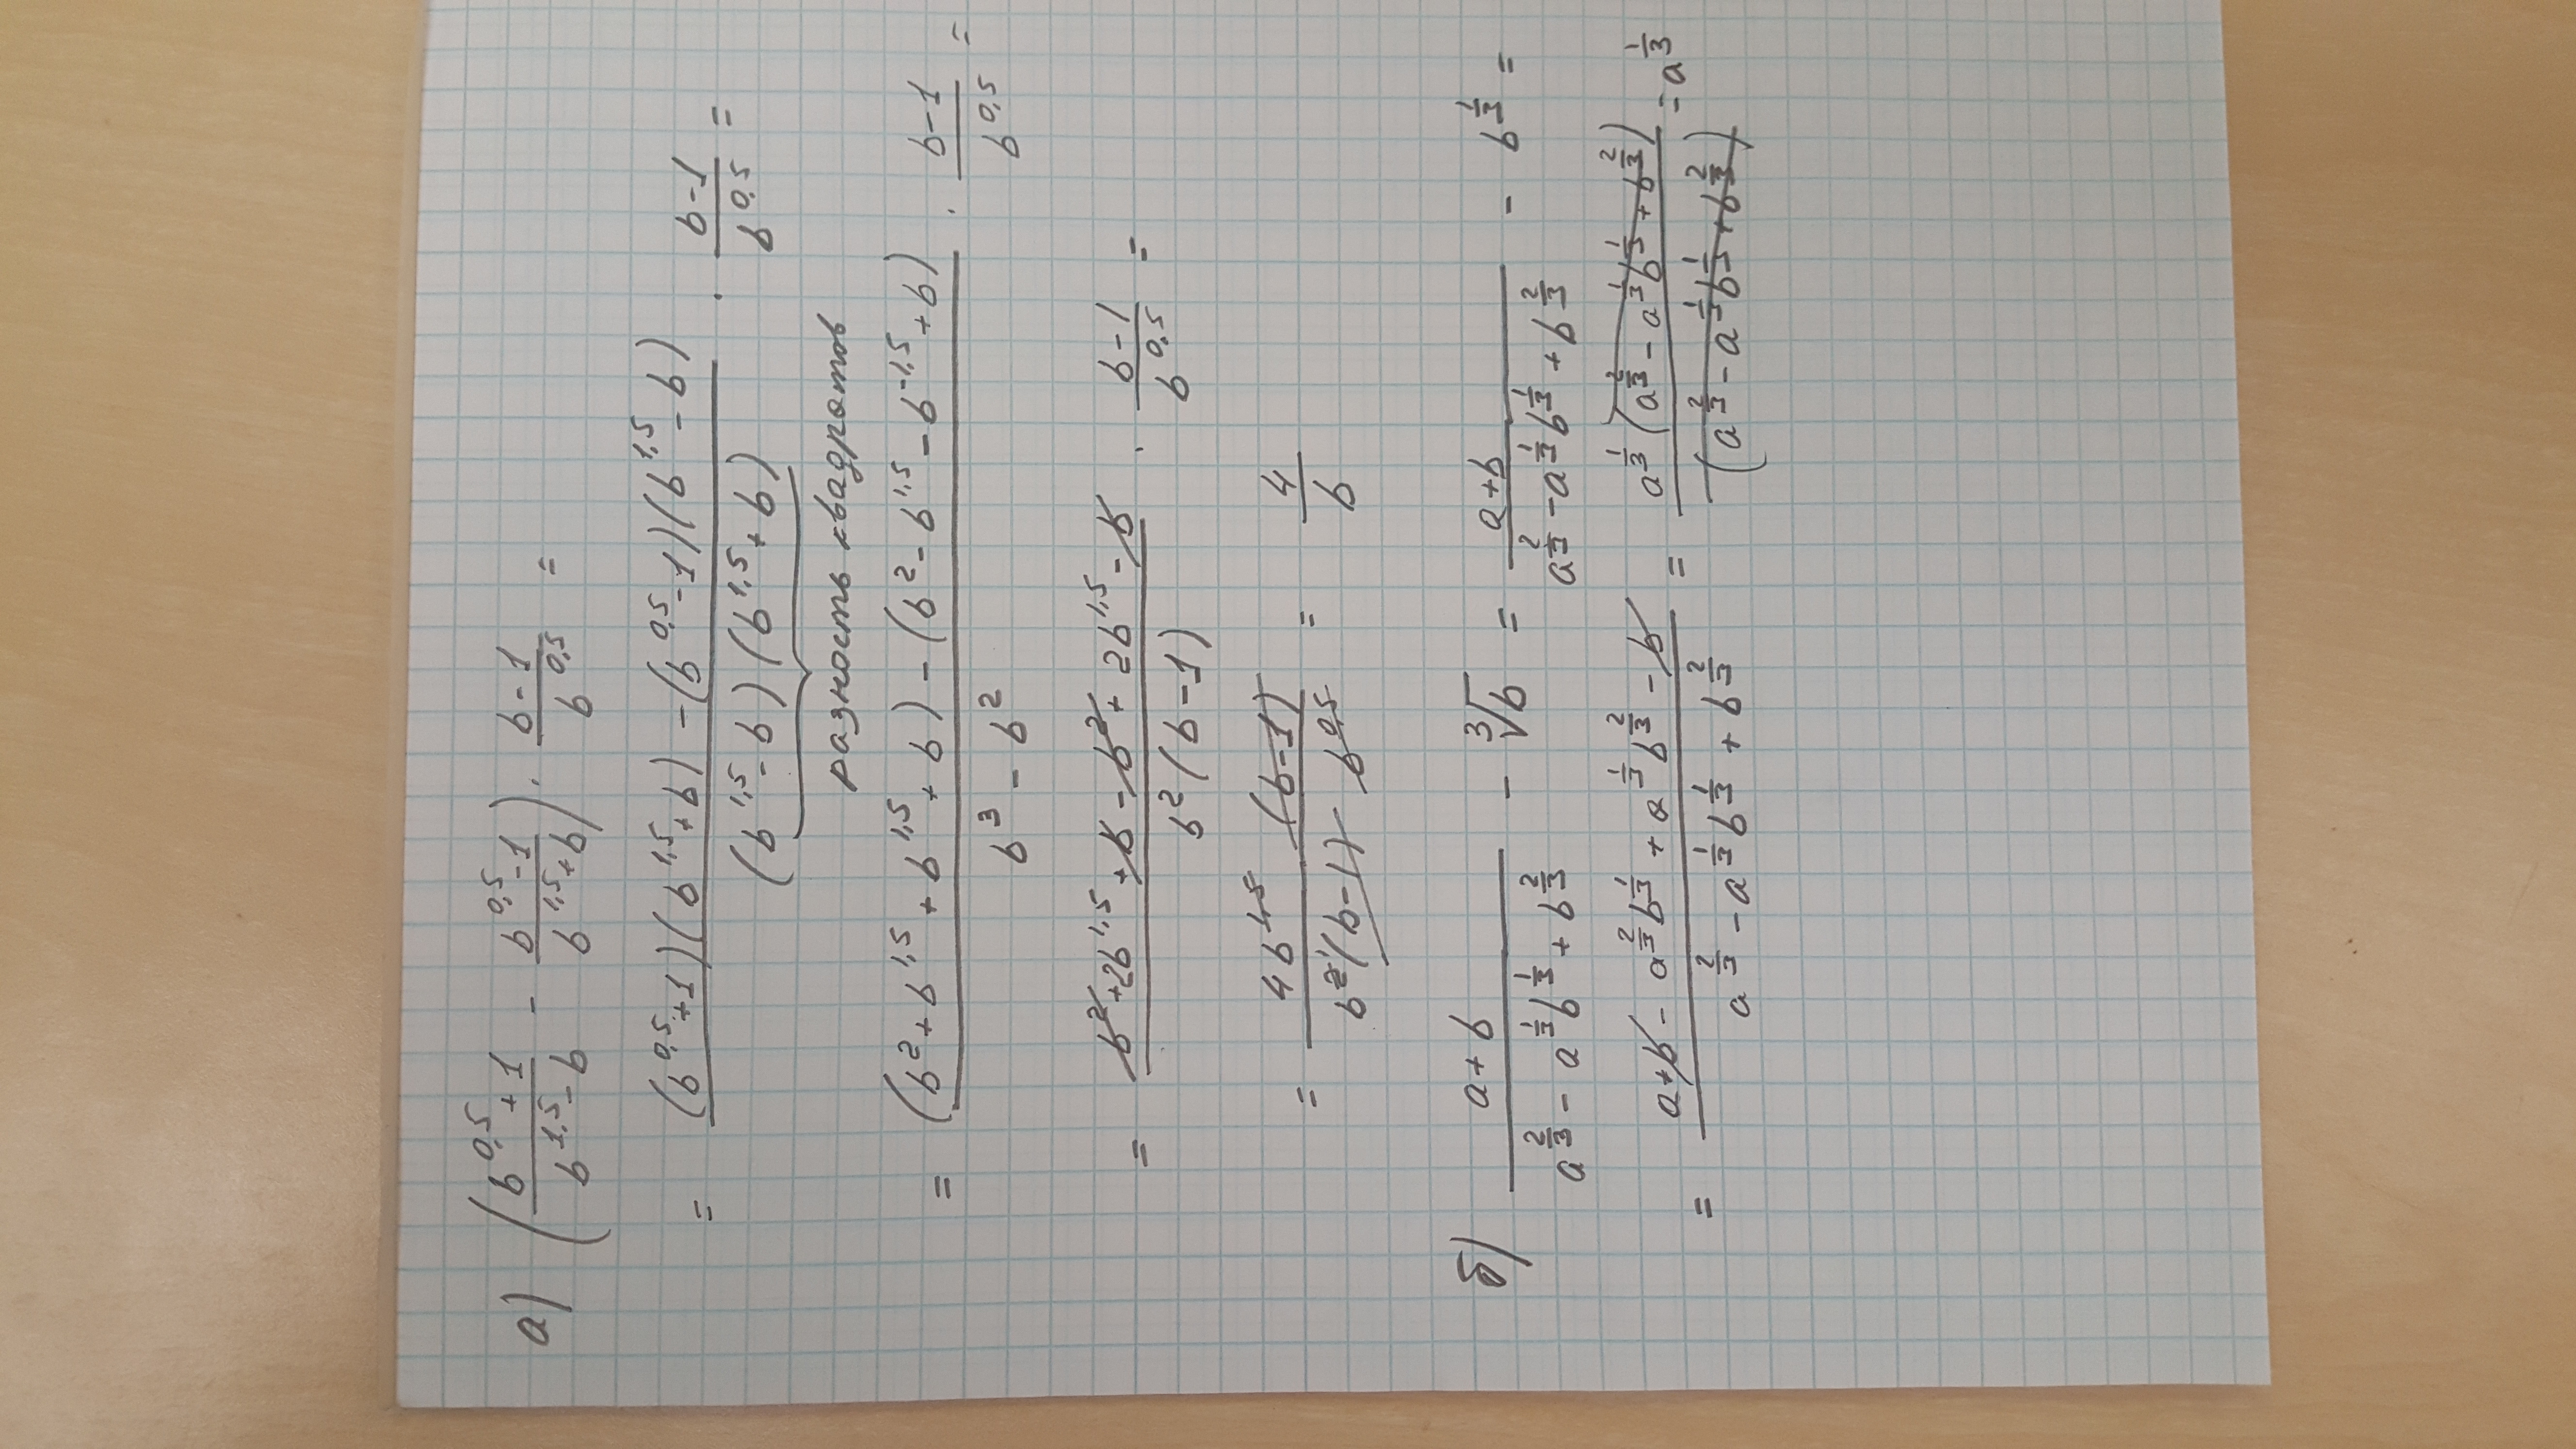 а) (b^0,5 + 1 / b^1,5 - b - b^0,5 - 1 / b^1,5 + b) · b - 1 / b^0,5 =
= (b^0,5 + 1)(b^1,5 + b) - (b^0,5 - 1)(b^1,5 - b) / (b^1,5 - b)(b^1,5 + b) · b - 1 / b^0,5 =
разность квадратов
= (b^2 + b^1,5 + b^1,5 + b) - (b^2 - b^1,5 - b^-1,5 + b) / b^3 - b^2 · b - 1 / b^0,5 =
= b^2 + 2b^1,5 + b - b^2 + 2b^1,5 - b / b^2(b - 1) · b - 1 / b^0,5 =
= 4b^1,5 (b - 1) / b^2(b - 1) b^0,5 = 4 / b
б) a + b / a^2/3 - a^1/3 b^1/3 + b^2/3 - ∛b = a + b / a^2/3 - a^1/3 b^1/3 + b^2/3 - b^1/3 =
= a + b - a^2/3 b^1/3 + a^1/3 b^2/3 - b / a^2/3 - a^1/3 b^1/3 + b^2/3 = a^1/3 (a^2/3 - a^1/3 b^1/3 + b^2/3) / (a^2/3 - a^1/3 b^1/3 + b^2/3) = a^1/3